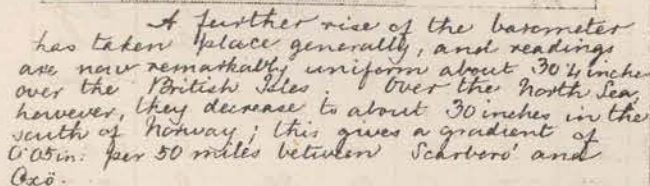 A further rise of the barometer
has taken place generally, and readings
are now remarkably uniform about 30·4 inches
over the British Isles. Over the North Sea,
however, they decrease to about 30 inches in the
south of Norway; this gives a gradient of
0·05in: per 50 miles between Scarboro' and
Oxö.